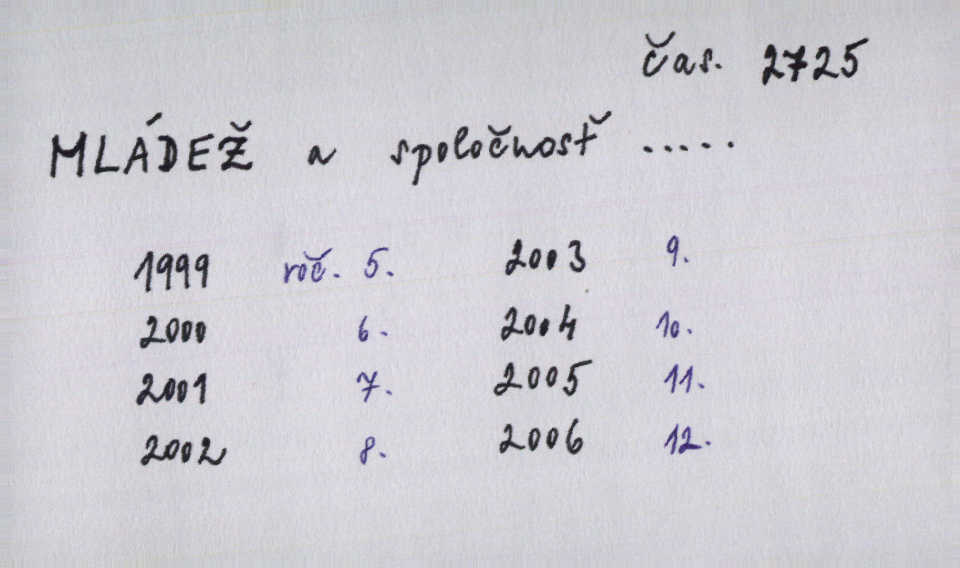 čas. 2725
MLÁDEŽ a spoločnosť .....
1999 roč. 5. 2003 9.
2000 6. 2004 10.
2001 7. 2005 11.
2002 8. 2006 12.